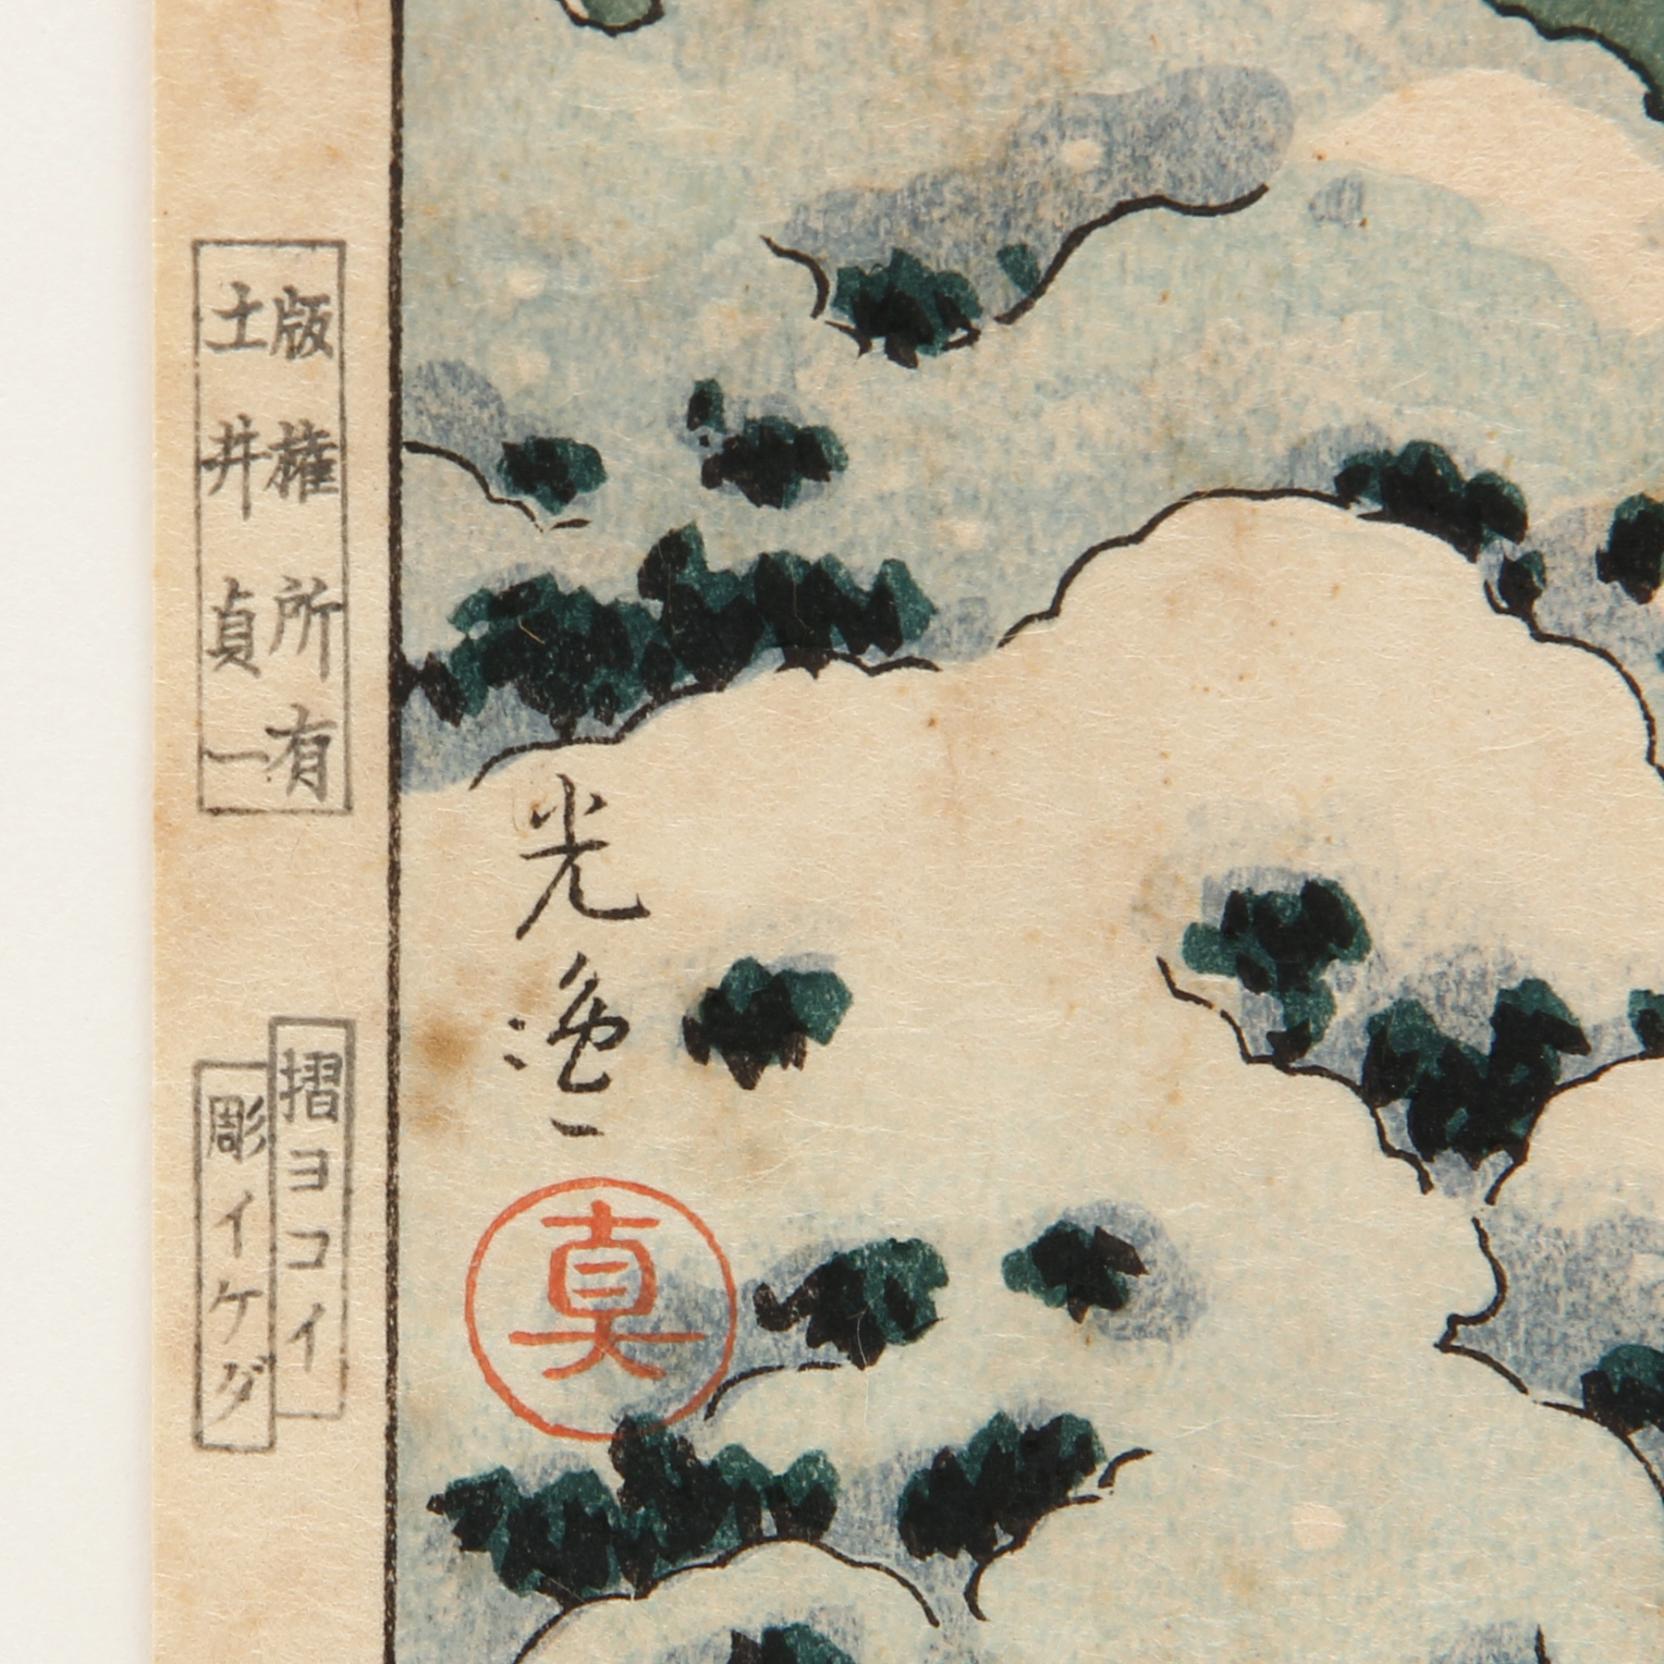 版権所有
土井貞一
摺ヨコイ
彫イケダ
光逸
真